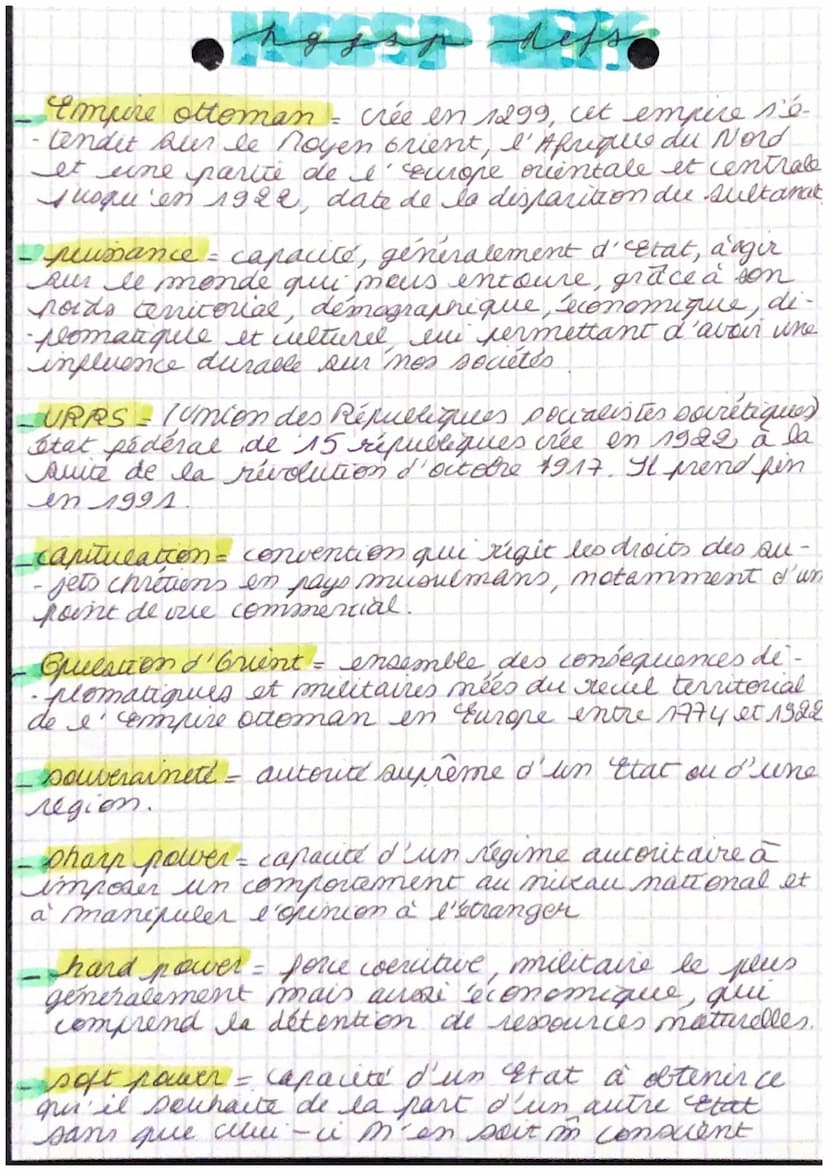 hggsp defs
- Empire ottoman = crée en 1299, cet empire s'é-
-tendit sur le Moyen Orient, l'Afrique du Nord
et une partie de l'Europe orientale et centrale
jusqu'en 1922, date de la disparition du sultanat
- puissance = capacité, généralement d'Etat, à agir
sur le monde qui nous entoure, grâce à son
poids territorial, démographique, économique, di-
-plomatique et culturel, lui permettant d'avoir une
influence durable sur nos sociétés
- URRS = (Union des Républiques socialistes soviétiques)
état fédéral de 15 républiques crée en 1922 à la
suite de la révolution d'octobre 1917. Il prend fin
en 1991.
- capitulation = convention qui régit les droits des su-
-jets chrétiens en pays musulmans, notamment d'un
point de vue commercial.
- Question d'Orient = ensemble des conséquences di-
-plomatiques et militaires nées du recul territorial
de l'empire ottoman en Europe entre 1774 et 1922
- souveraineté = autorité suprême d'un Etat ou d'une
région.
- sharp power = capacité d'un régime autoritaire à
imposer un comportement au niveau national et
à manipuler l'opinion à l'étranger
- hard power = force coercitive, militaire le plus
généralement mais aussi économique, qui
comprend la détention de ressources naturelles.
- soft power = capacité d'un Etat à obtenir ce
qu'il souhaite de la part d'un autre Etat
sans que celui-ci n'en soit m̂ conscient